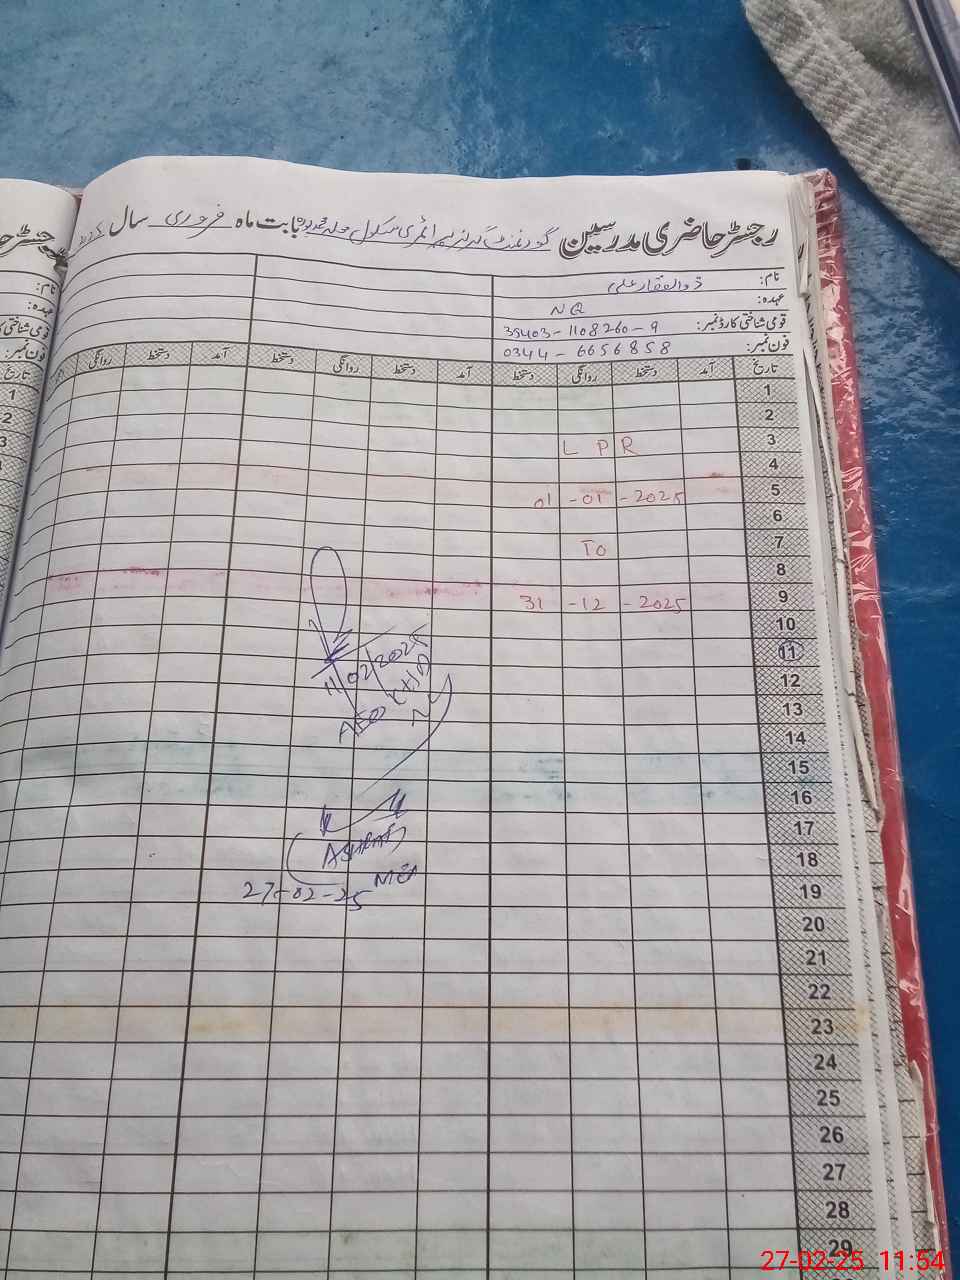 رجسٹر حاضری مدرسین گورنمنٹ گرلز پرائمری سکول محلہ بابت ماہ فروری سال 2025
نام: ذوالفقار علی
عہدہ: NQ
قومی شناختی کارڈ نمبر: 35403-1108260-9
فون نمبر: 0344-6656858
تاریخ آمد دستخط روانگی دستخط آمد دستخط روانگی دستخط آمد دستخط روانگی
1
2
3 L P R
4
5 01-01-2025
6
7 To
8
9 31-12-2025
10
11
11/02/2025
12
AEO
13
14
15
16
17
ASHRAF
18
MEA
19
27-02-25
20
21
22
23
24
25
26
27
28
29
جسٹر حا
نام:
عہدہ:
قومی شناختی کا
فون نمبر:
تاریخ
1
2
3
27-02-25 11:54